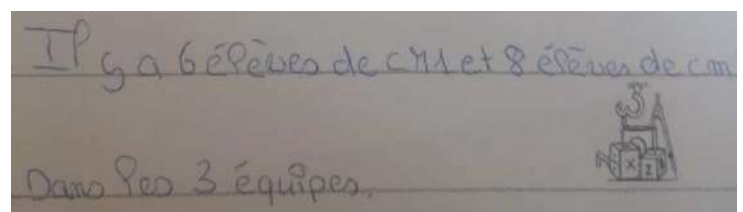 Il y a 6 élèves de CM1 et 8 élèves de cm
Dans les 3 équipes.